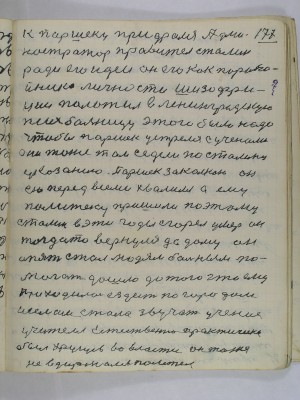 К паршеку придрался Адми- 177
нистратор правител сталин
ради его идеи он его как парано-
йника личности Шизофре-
ции положил в Ленинградскую
псих баяницу этого было надо
чтобы паршек устрелся учонам
они тоже там седели по сталину
указанию. Паршек закалкой он
се перед всеми хвалился а ему
политику пришили поэтому
сталин в эти годы сгорел умер он
тогда то вернулся да дому он
опят стал людям больным по-
могат дошло до того что ему
приходилос ездеит по городам
и селам стала звучат учение
учителя Естественно практически
был хрущев во власти он тоже
не в